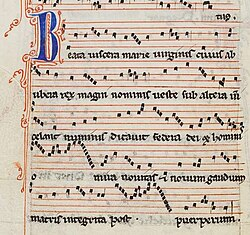 Beata viscera marie virginis cuius ad
ubera rex magni nominis ueste sub altera
celans numinis dictauit federa dei & homini
o mira nouitas & nouum gaudium
matris integrita post puerperium